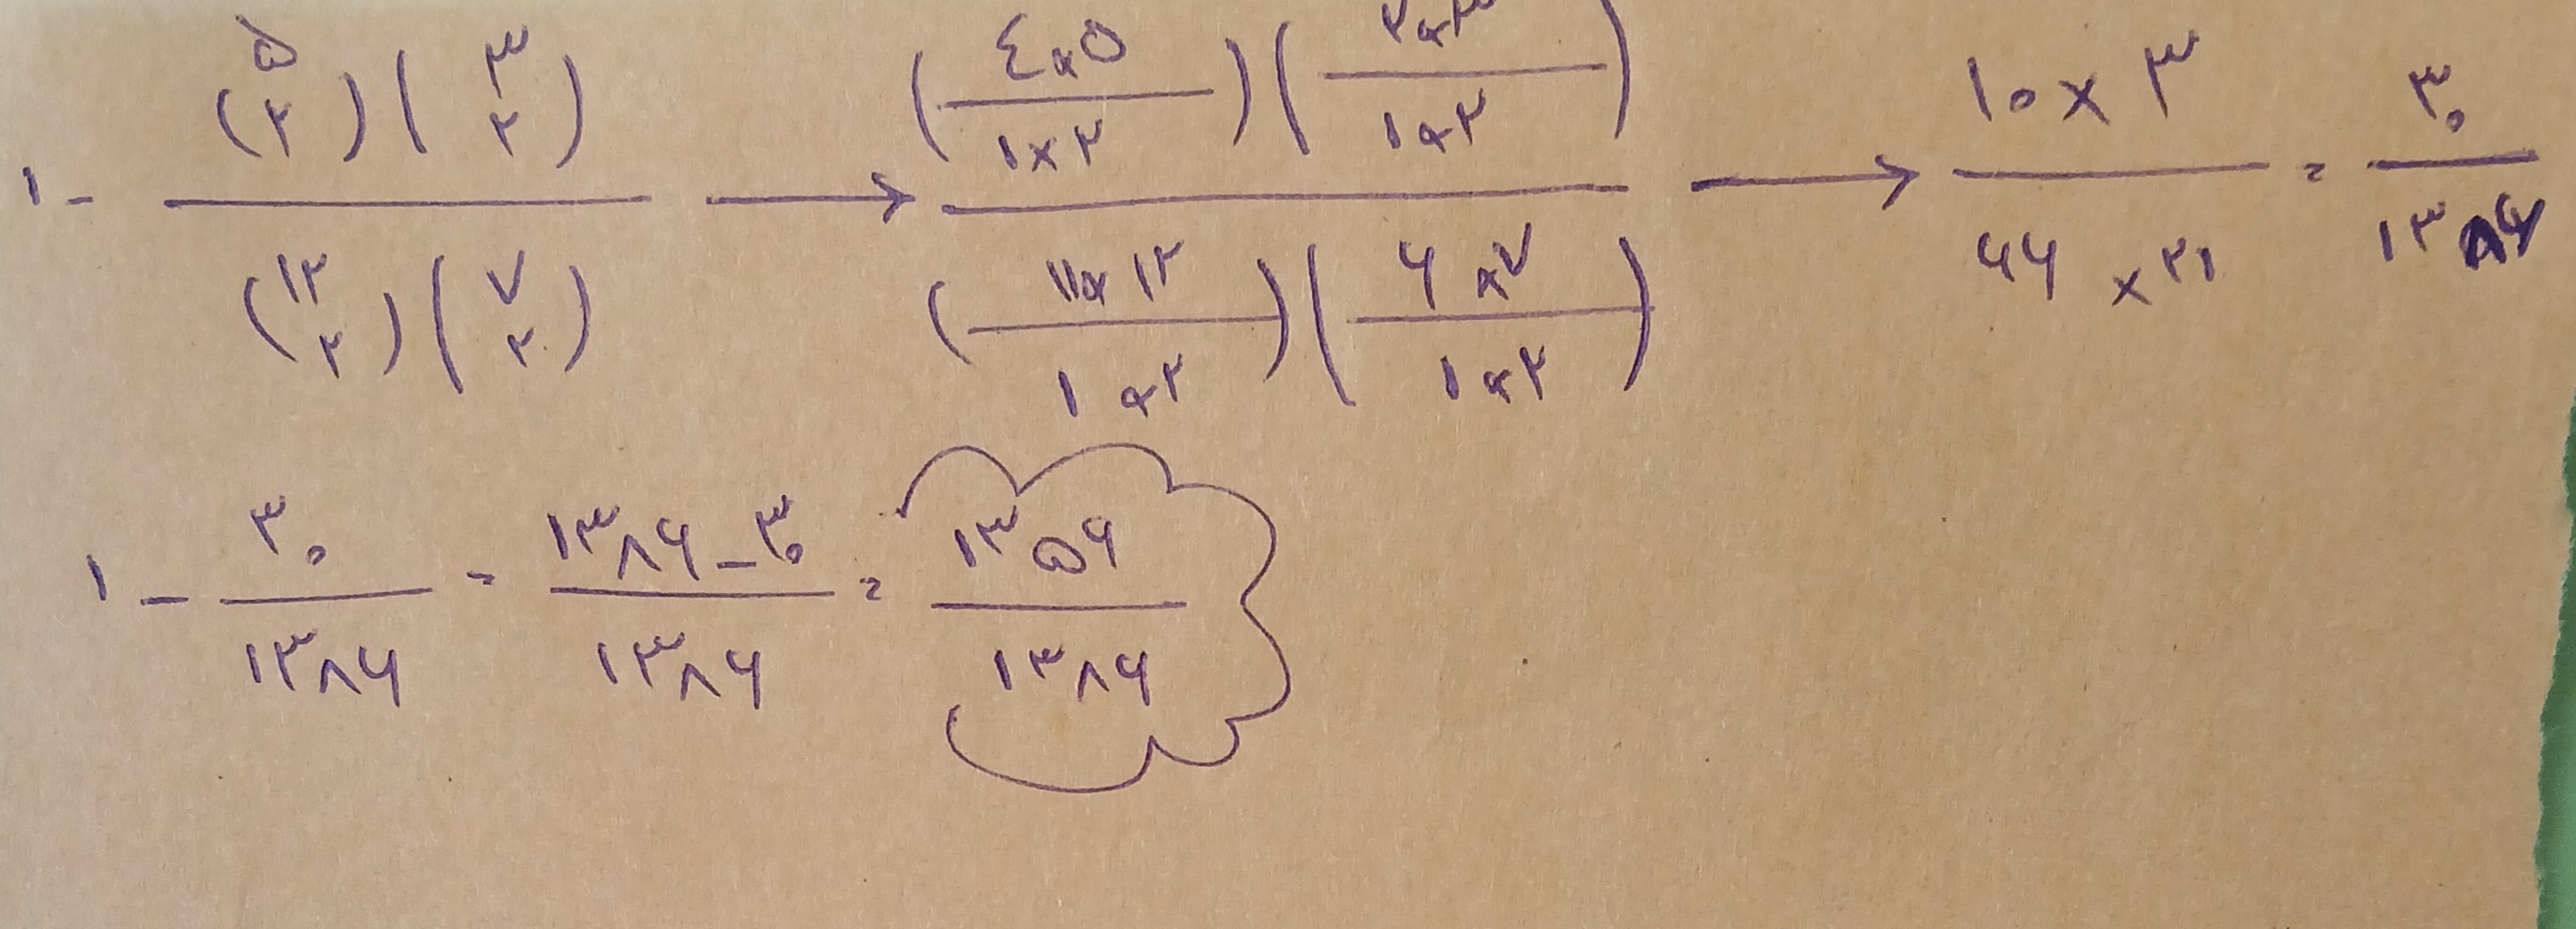 ۱ - (۵ ۲)(۳ ۲) / (۱۲ ۲)(۷ ۲) → (۴×۵ / ۱×۲)(۲×۳ / ۱×۲) / (۱۱×۱۲ / ۱×۲)(۶×۷ / ۱×۲) → ۱۰×۳ / ۶۶×۲۱ = ۳۰ / ۱۳۸۶
۱ - ۳۰ / ۱۳۸۶ = ۱۳۸۶-۳۰ / ۱۳۸۶ = ۱۳۵۶ / ۱۳۸۶